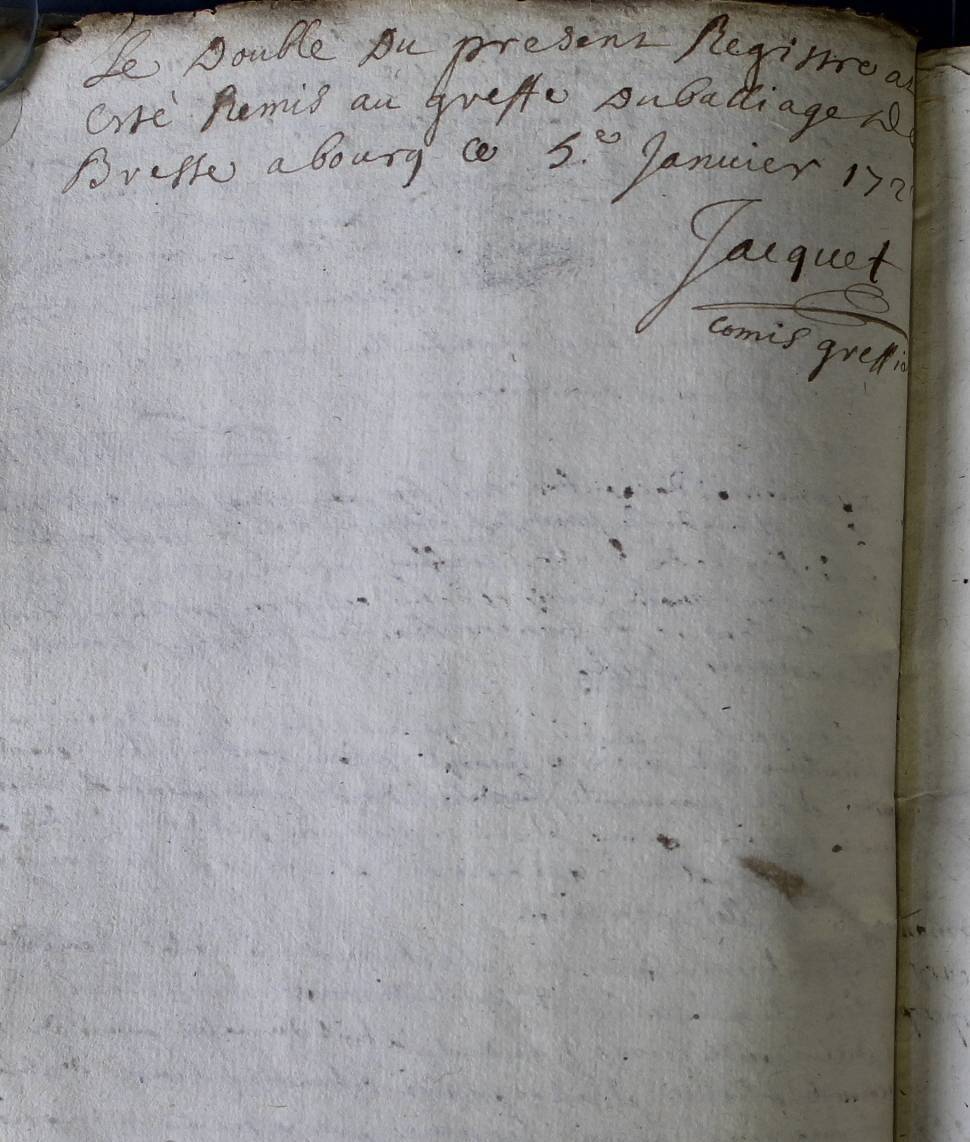 Le Double Du present Registre a
Esté Remis au greffe Dubailiage De
Bresse abourg ce 5.e Januier 172
Jacquet
comis greffie